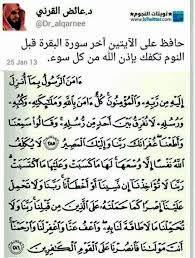 د.عائض القرني
@Dr_alqarnee
تويتات النجوم
www.tsTwitter.com
حافظ على الآيتين آخر سورة البقرة قبل
النوم تكفك بإذن الله من كل سوء.
25 Jan 13
ءَامَنَ ٱلرَّسُولُ بِمَآ أُنزِلَ
إِلَيْهِ مِن رَّبِّهِۦ وَٱلْمُؤْمِنُونَ كُلٌّ ءَامَنَ بِٱللَّهِ وَمَلَٰٓئِكَتِهِۦ وَكُتُبِهِۦ
وَرُسُلِهِۦ لَا نُفَرِّقُ بَيْنَ أَحَدٍ مِّن رُّسُلِهِۦ وَقَالُوا۟ سَمِعْنَا
وَأَطَعْنَا غُفْرَانَكَ رَبَّنَا وَإِلَيْكَ ٱلْمَصِيرُ ٢٨٥ لَا يُكَلِّفُ
ٱللَّهُ نَفْسًا إِلَّا وُسْعَهَا لَهَا مَا كَسَبَتْ وَعَلَيْهَا مَا ٱكْتَسَبَتْ
رَبَّنَا لَا تُؤَاخِذْنَآ إِن نَّسِينَآ أَوْ أَخْطَأْنَا رَبَّنَا وَلَا تَحْمِلْ
عَلَيْنَآ إِصْرًا كَمَا حَمَلْتَهُۥ عَلَى ٱلَّذِينَ مِن قَبْلِنَا رَبَّنَا وَلَا تُحَمِّلْنَا
مَا لَا طَاقَةَ لَنَا بِهِۦ وَٱعْفُ عَنَّا وَٱغْفِرْ لَنَا وَٱرْحَمْنَآ
أَنتَ مَوْلَىٰنَا فَٱنصُرْنَا عَلَى ٱلْقَوْمِ ٱلْكَٰفِرِينَ ٢٨٦